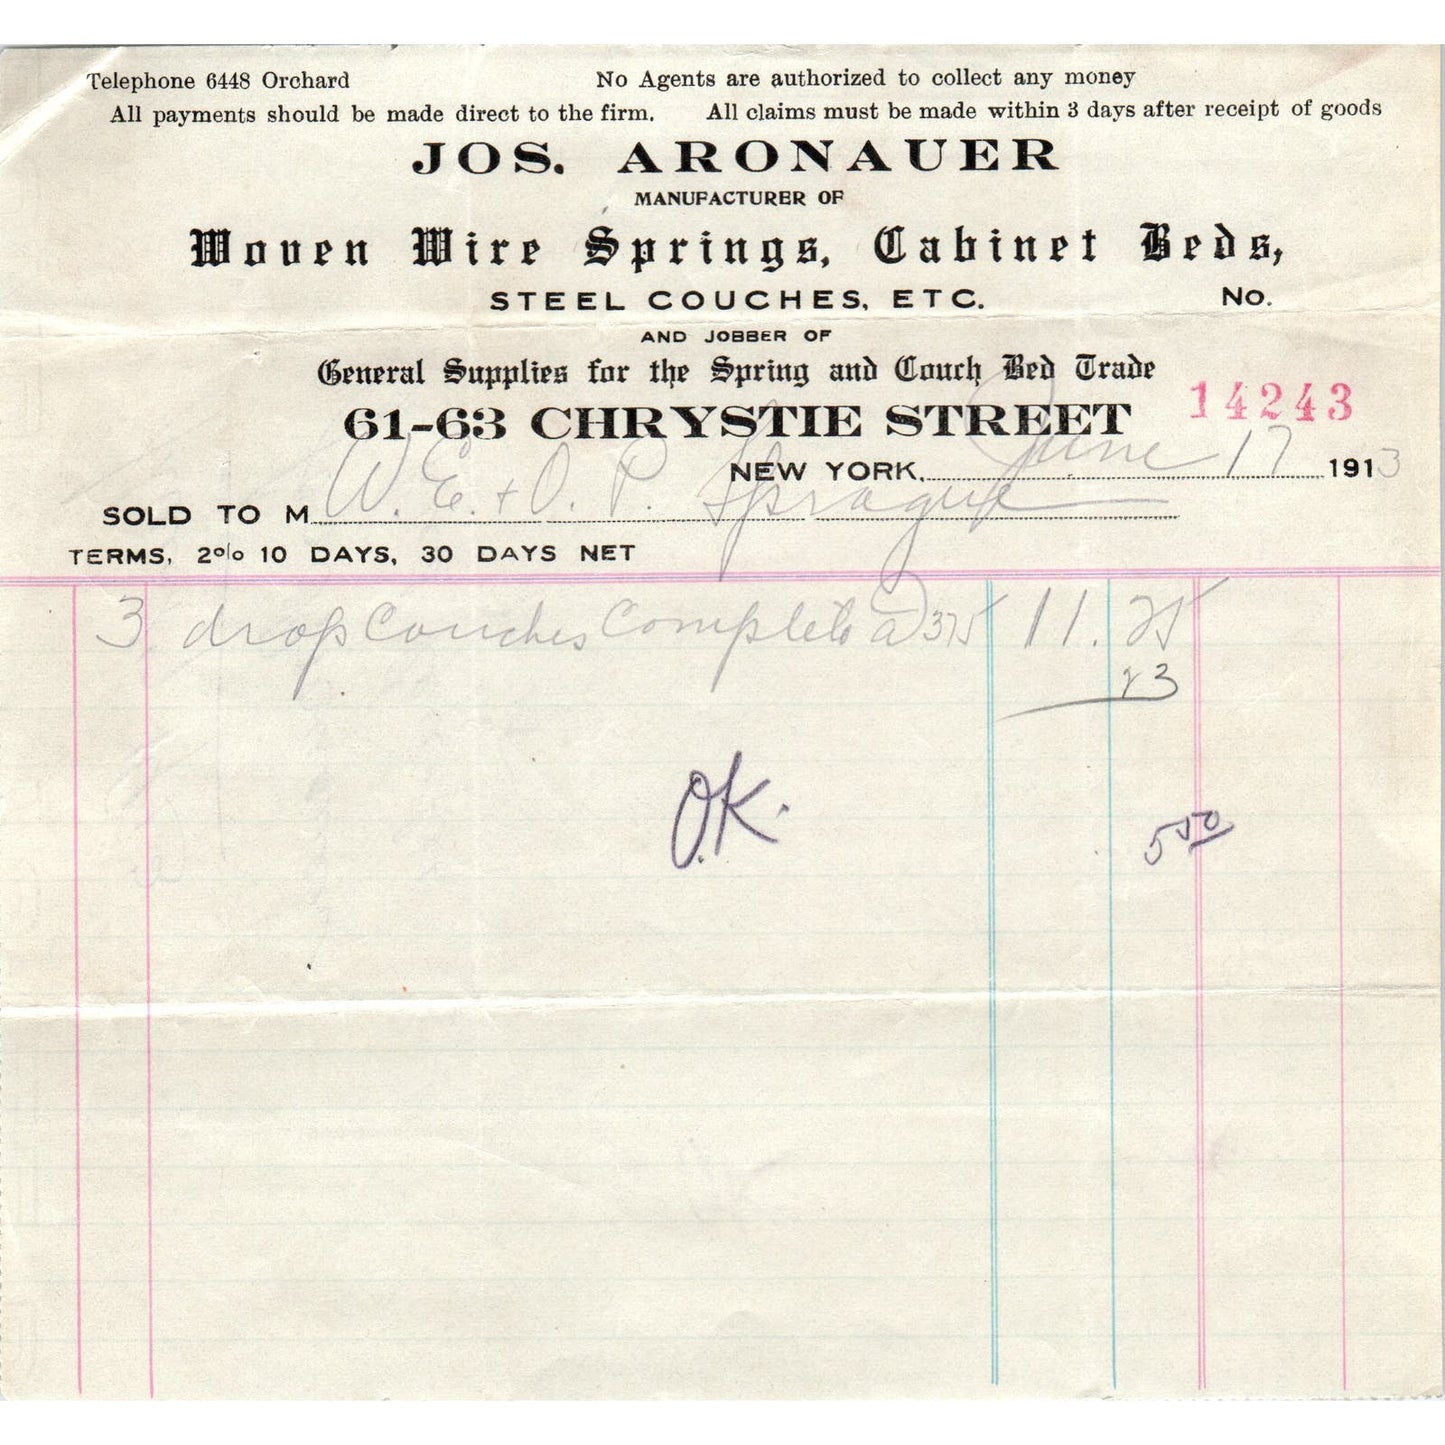 Telephone 6448 Orchard No Agents are authorized to collect any money
All payments should be made direct to the firm. All claims must be made within 3 days after receipt of goods
JOS. ARONAUER
MANUFACTURER OF
Woven Wire Springs, Cabinet Beds,
STEEL COUCHES, ETC. No.
AND JOBBER OF
General Supplies for the Spring and Couch Bed Trade
14243
61-63 CHRYSTIE STREET
NEW YORK, June 17 1913
SOLD TO M W. E. + O. P. Sprague
TERMS, 2% 10 DAYS, 30 DAYS NET
3 drop Couches Complete @ 375 11.25
23
O.K.
5 50